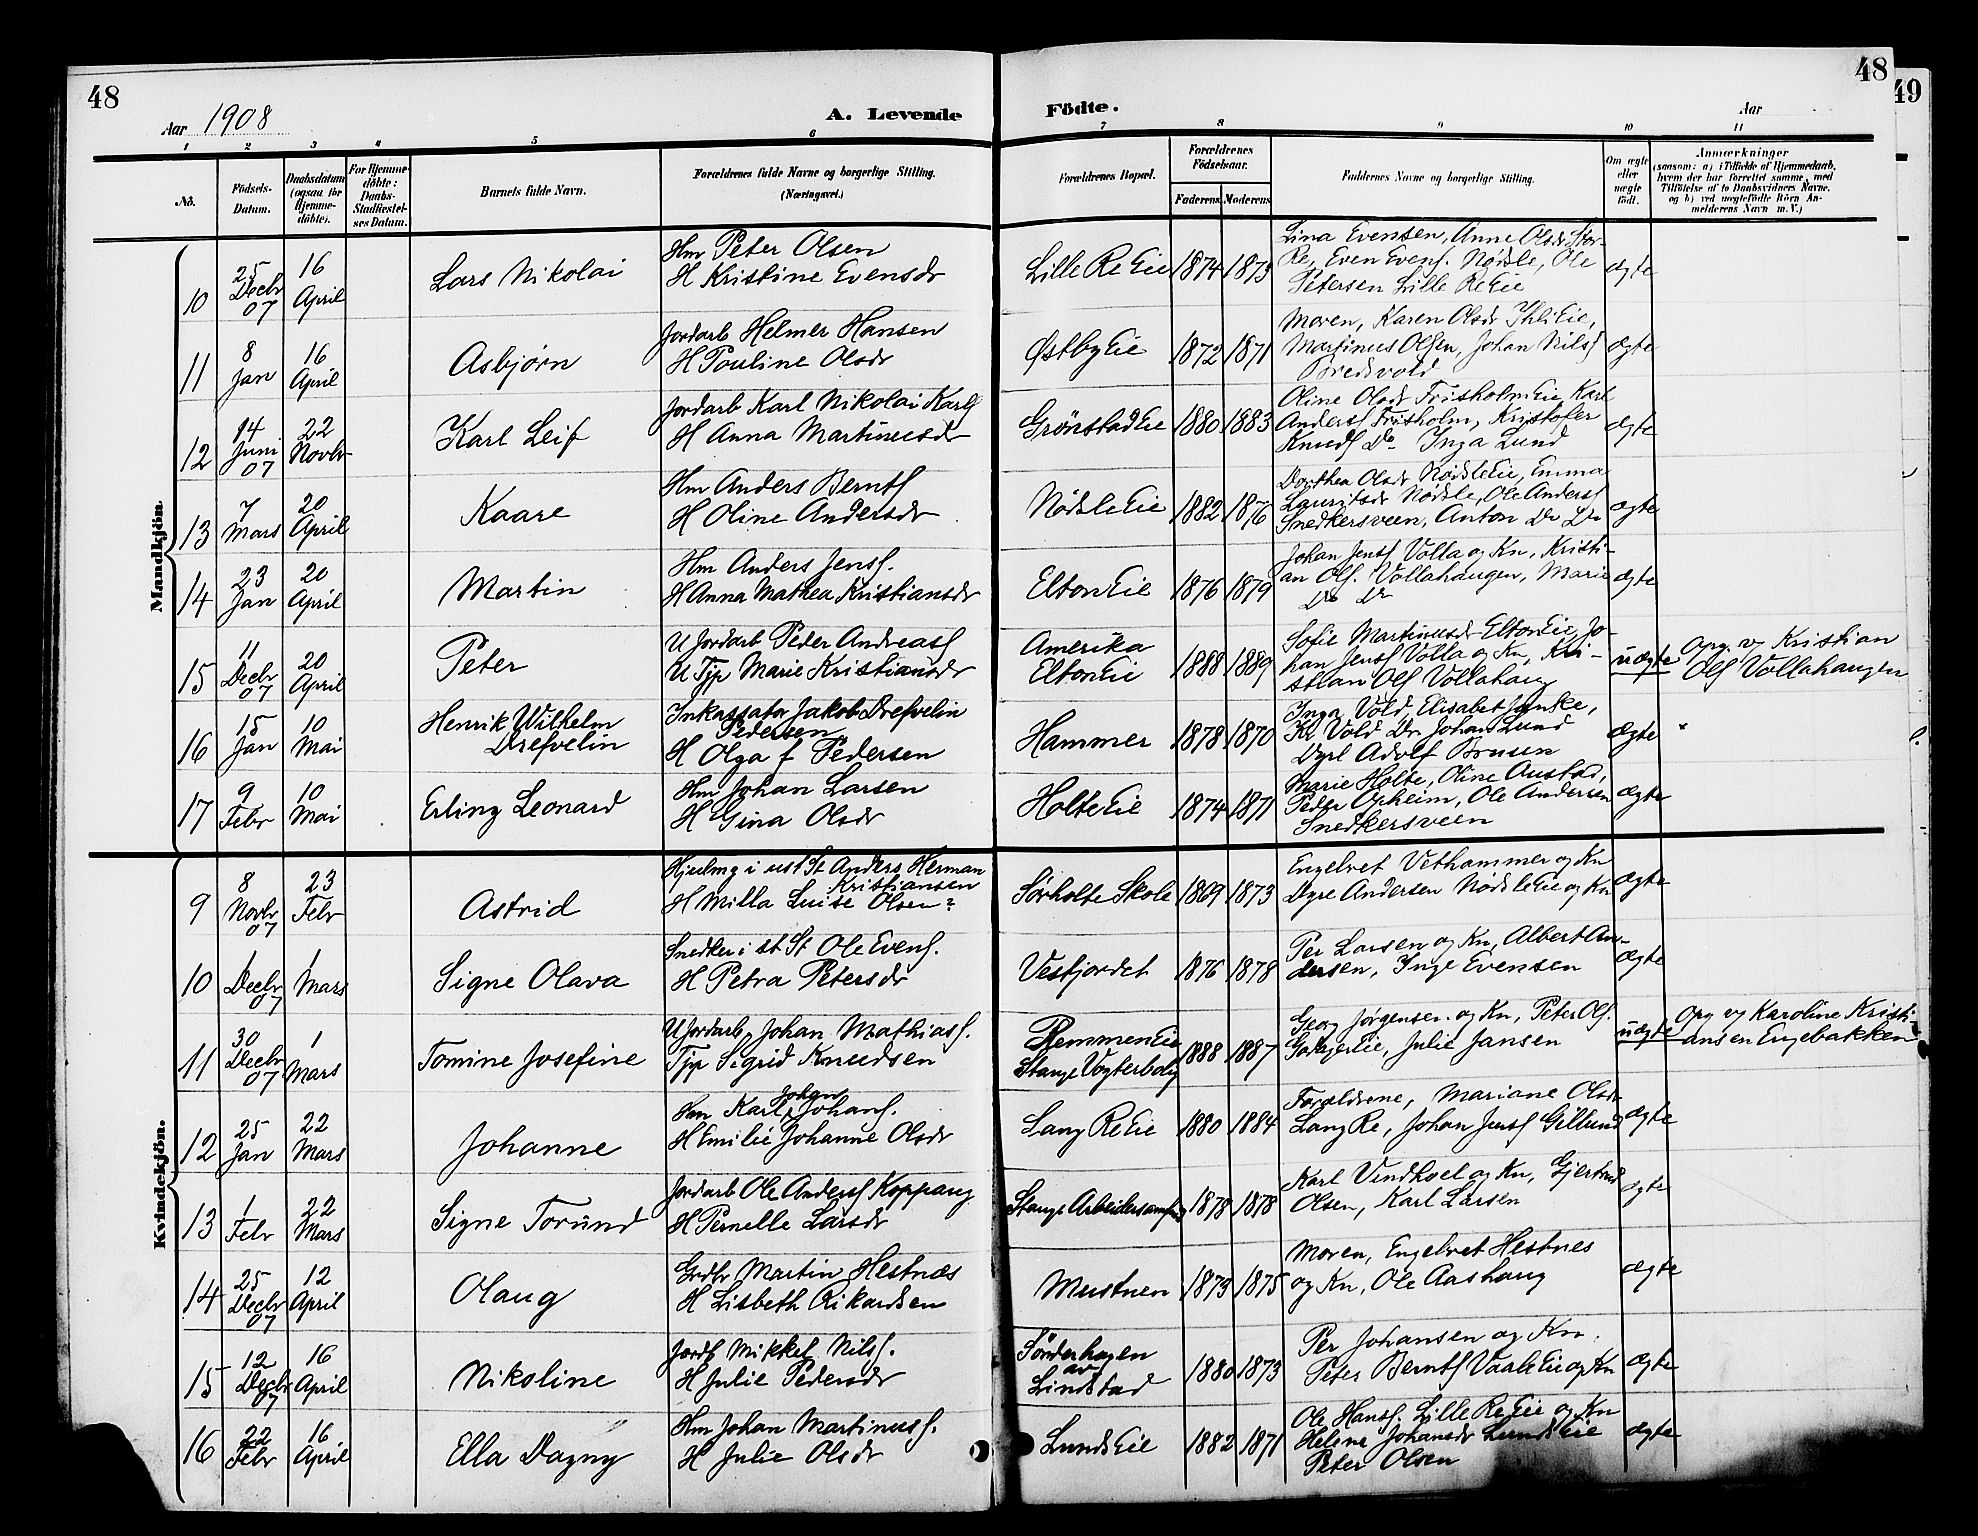 48
Aar 1908
A. Levende
Födte.
Aar
48
49
1 2 3 4 5 6 7 8 9 10 11
No.
Födsels-Datum.
Daabsdatum (ogsaa for Hjemme-döbte).
For Hjemme-döbte: Daabs-Stadfæstel-ses Datum.
Barnets fulde Navn.
Forældrenes fulde Navne og borgerlige Stilling. (Næringsvei.)
Forældrenes Bopæl.
Forældrenes Födselsaar.
Faderens Moderens
Faddernes Navne og borgerlige Stilling.
Om ægte eller uægte födt.
Anmærkninger
(saasom: a) i Tilfælde af Hjemmedaab, hvem der har forrettet samme, med Tilföielse af to Daabsvidners Navne, og b) ved uægtefödte Börn An-melderens Navn m. V.)
Mandkjön.
10 25 Decbr 07 16 April Lars Nikolai
Hm Peter Olsen
H Kristine Evensdr
Lille Re Eie 1874 1873
Lina Evensen, Anne Olsdr Stor-
Re, Even Evens. Nødsle, Ole
Petersen Lille Re Eie
ægte
11 8 Jan 16 April Asbjørn
Jordarb Helmer Hansen
H Pouline Olsdr
Østby Eie 1872 1871
Moren, Karen Olsdr Ihle Eie,
Martinus Olsen, Johan Nils
Bredsvold
ægte
12 14 Juni 07 22 Novbr Karl Leif
Jordarb Karl Nikolai Karls
H Anna Martinusdr
Grønstad Eie 1880 1883
Oline Olsdr Frisholm Eie, Karl
Anders Frisholm, Kristofer
Knuds Do Inga Lund
ægte
13 7 Mars 20 April Kaare
Hm Anders Bernts
H Oline Andersdr
Nødsle Eie 1882 1876
Dorthea Olsdr Nødsle Eie, Emma
Lauritsdr Nødsle, Ole Anders
Snedkersveen, Anton Do Do
ægte
14 23 Jan 20 April Martin
Hm Anders Jens.
H Anna Mathea Kristiansdr
Elton Eie 1876 1879
Johan Jens Volla og Kn, Kristi-
an Ols. Vollahaugen, Marie
Do Do
ægte
15 11 Decbr 07 20 April Peter
U Jordarb Peder Andreas
U Tjp Marie Kristiansdr
Amerika
Elton Eie 1888 1889
Sofie Martinusdr Elton Eie, Jo-
han Jens Volla og Kn, Kri-
stian Ols Vollahaug
uægte
Opg. v Kristian
Ols Vollahaugen
16 15 Jan 10 Mai Henrik Wilhelm
Drefvelin
Inkassator Jakob Drefvelin
Pedersen
H Olga f Pedersen
Hammer 1878 1870
Inga Vold, Elisabet Janke,
Kr Vold Do Johan Lund
Dyrl Adolf Brusen
ægte
17 9 Febr 10 Mai Erling Leonard
Hm Johan Larsen
H Gina Olsdr
Holte Eie 1874 1871
Marie Holte, Oline Austad,
Peder Opheim, Ole Andersen
Snedkersveen
ægte
Kvindekjön.
9 8 Novbr 07 23 Febr Astrid
Hjulmg i ust St Anders Herman
Kristiansen
H Milla Luise Olsen
Sørholte Skole 1869 1873
Engebret Vethammer og Kn
Dyre Andersen Nødsle Eie og Kn
ægte
10 1 Decbr 07 1 Mars Signe Olava
Snedker i st St Ole Evens.
H Petra Petersdr
Vestfjordet 1876 1878
Per Larsen og Kn, Albert An-
dersen, Inge Evensen
ægte
11 30 Decbr 07 1 Mars Tomine Josefine
U Jordarb, Johan Mathias.
Tjp Sigrid Knudsen
Remmen Eie
Stange Vogterbolig 1888 1887
Georg Jørgensen og Kn, Peter Ols.
Julie Jansen
uægte
Opg v Karoline Kristi-
ansen Engebakken
12 25 Jan 22 Mars Johanne
Hm Karl Johan Johans.
H Emilie Johanne Olsdr
Lang Re Eie 1880 1884
Forældrene, Mariane Olsdr
Lang Re, Johan Jens Gillund
ægte
13 1 Febr 22 Mars Signe Torund
Jordarb Ole Anders Koppang
H Pernelle Larsdr
Stange Arbeidersamf 1878 1878
Karl Vindhoel og Kn, Gjertrud
Olsen, Karl Larsen
ægte
14 25 Decbr 07 12 April Olaug
Grdbr Martin Hestnæs
H Lisbeth Rikardsen
Mustuen 1873 1875
Moren, Engebret Hestnes
og Kn, Ole Aashaug
ægte
15 12 Decbr 07 16 April Nikoline
Jordb Mikkel Nils.
H Julie Pedersdr
Sönderhagen
av
Lindstad 1880 1873
Per Johansen og Kn.
Peter Bernts Vaale Eie og Kn
ægte
16 22 Febr 16 April Ella Dagny
Hm Johan Martinus.
H Julie Olsdr
Lunds Eie 1882 1871
Ole Hans. Lille Re Eie og Kn
Helene Johansdr Lunds Eie
Peter Olsen
ægte